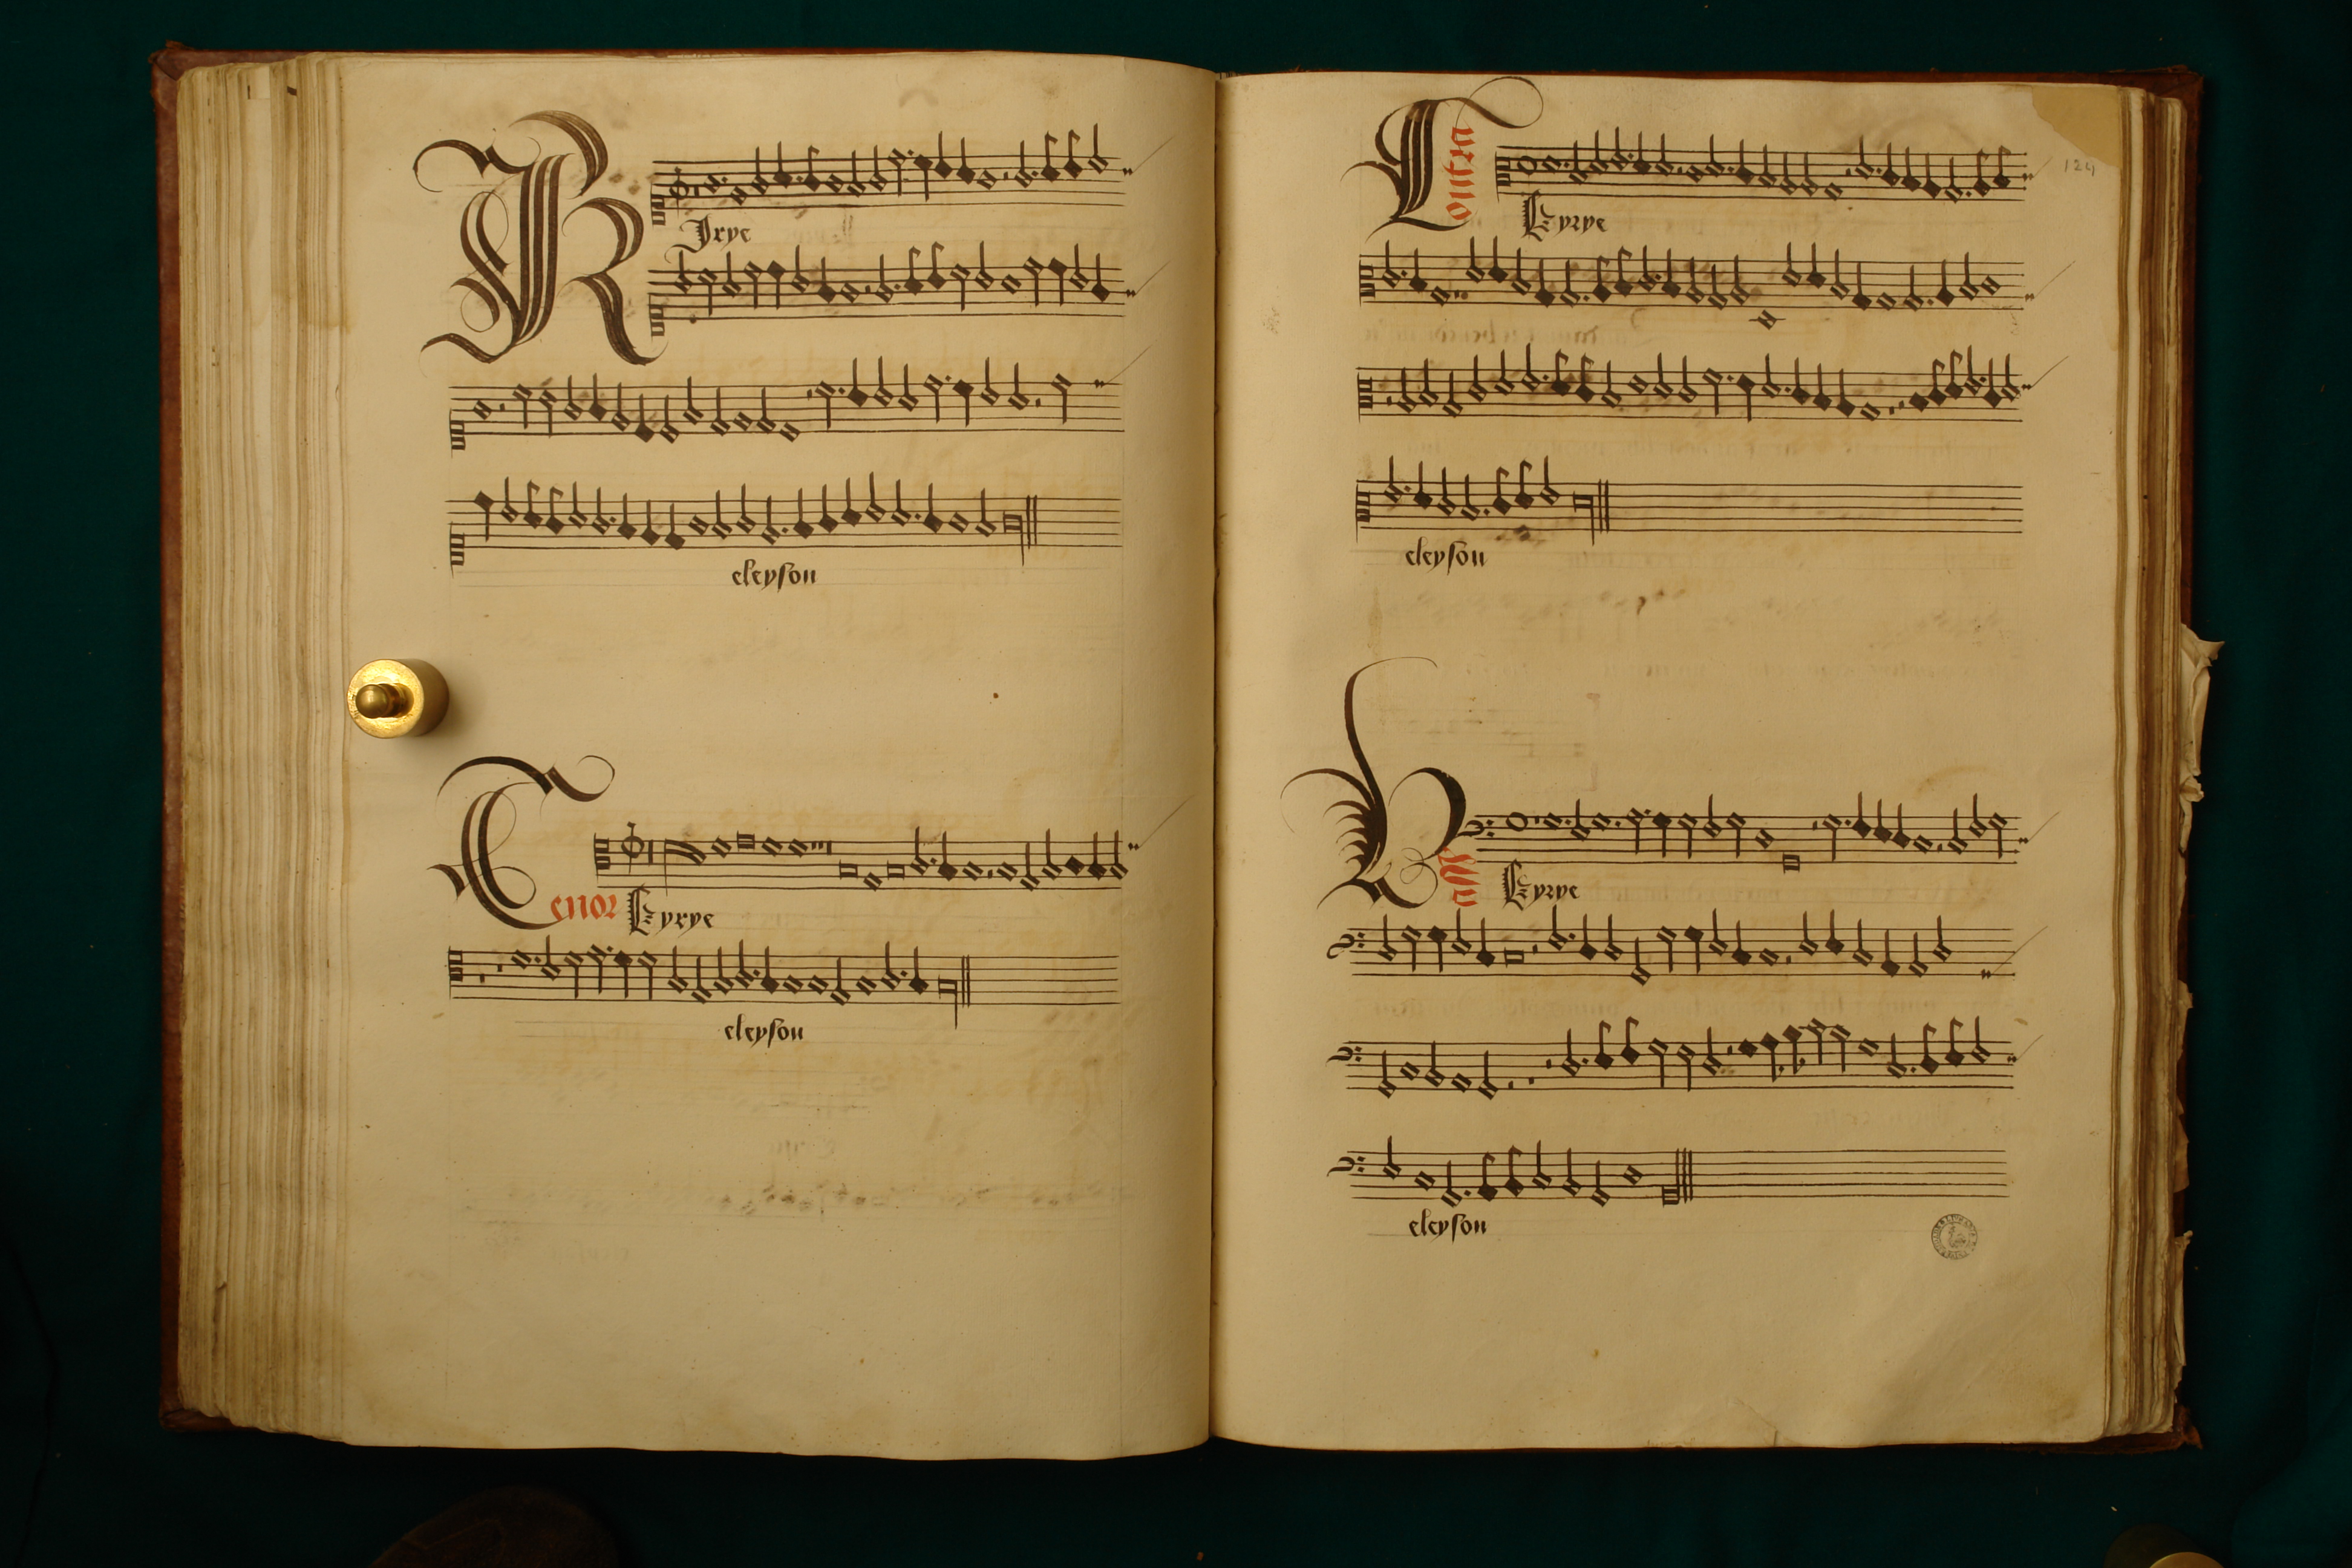 KJrye
eleyson
Tenor Kyrye
eleyson
Contra
124
Kyrye
eleyson
Bassus
Kyrye
eleyson